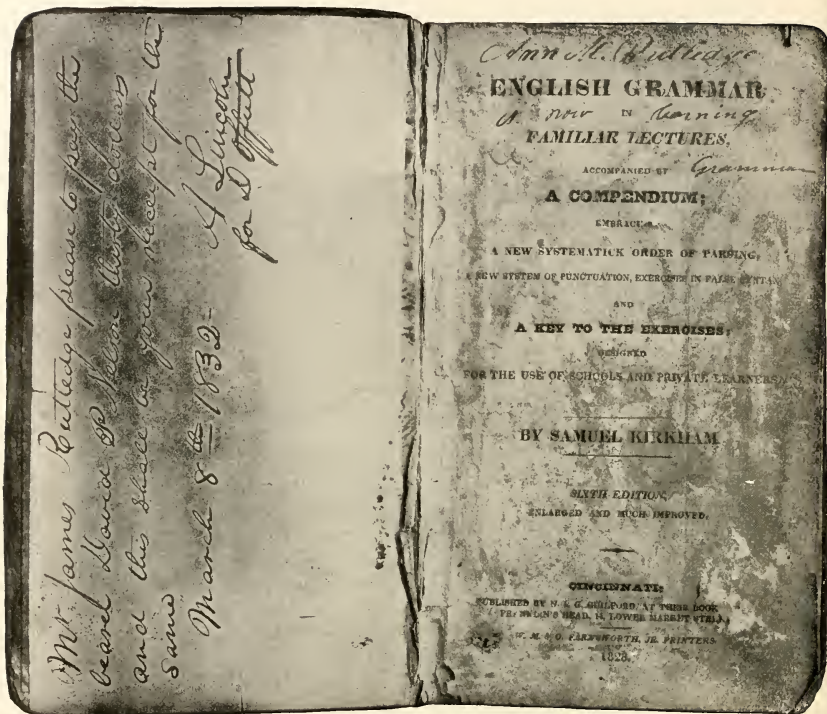 Mr James Rutledge please to pay the
bearer David P Nelson thirty dollars
and this shall be your receipt for the
same
March 8th 1832-
A Lincoln
for D Offutt
Ann M. Rutledge
ENGLISH GRAMMAR
is now IN learning
FAMILIAR LECTURES,
ACCOMPANIED BY Grammar
A COMPENDIUM;
EMBRACING
A NEW SYSTEMATICK ORDER OF PARSING,
A NEW SYSTEM OF PUNCTUATION, EXERCISES IN FALSE SYNTAX
AND
A KEY TO THE EXERCISES;
DESIGNED
FOR THE USE OF SCHOOLS AND PRIVATE LEARNERS.
BY SAMUEL KIRKHAM
SIXTH EDITION,
ENLARGED AND MUCH IMPROVED.
CINCINNATI:
PUBLISHED BY N. & G. GUILFORD, AT THEIR BOOK
FRANKLIN'S HEAD, 14, LOWER MARKET STREET
W. M. & O. FARNSWORTH, JR. PRINTERS.
1828.